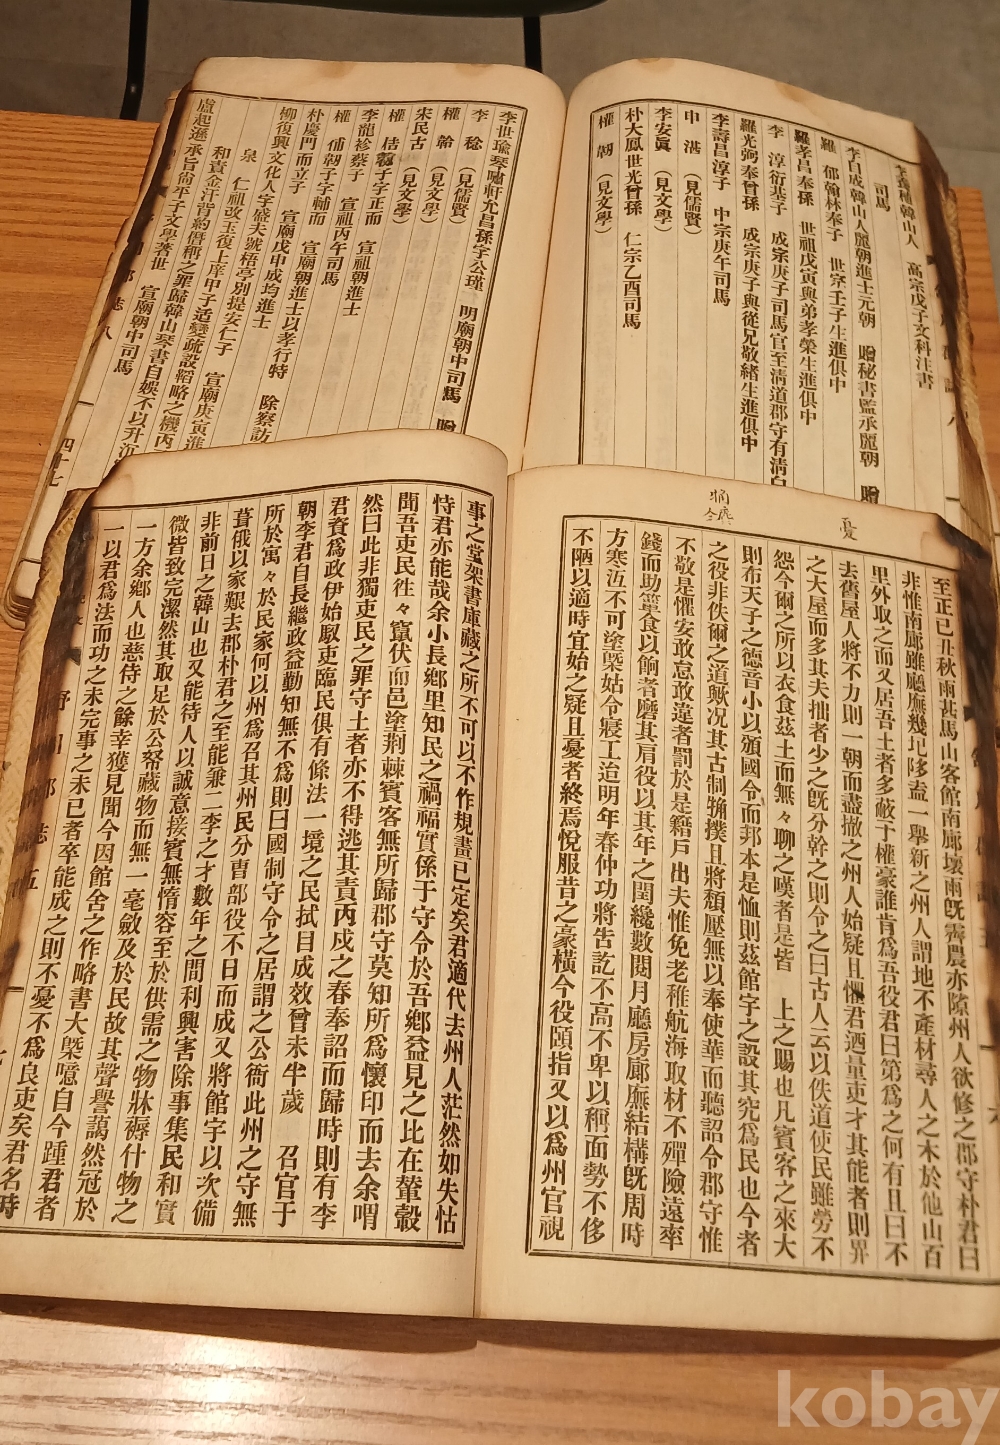 李穡種韓山人　高宗戊子文科注書
司馬
李自成韓山人麗朝進士元朝　贈秘書監丞麗朝　贈
羅　郁翰林奉子　世宗壬子生進俱中
羅孝昌奉孫　世祖戊寅與弟孝榮生進俱中
李　淳衍基子　成宗庚子司馬官至清道郡守有清白
羅光弼奉曾孫　成宗庚子與從兄敬緖生進俱中
李壽昌淳子　中宗庚午司馬
申　湛　(見儒賢)
李安眞　(見文學)
朴大鳳世光曾孫　仁宗乙酉司馬
權　韌　(見文學)
李世瑜琴嘯軒允昌孫字公瑾　明廟朝中司馬　贈
李　稔　(見儒賢)
權　幹　(見文學)
宋民古　(見文學)
權　𠏉子字正而　宣祖朝進士
李龍袗蔡子　宣祖丙午司馬
權　俌韌子字輔而　宣廟朝進士以孝行特　除察訪
朴慶門而立子　宣廟戊申成均進士
柳復興文化人字盛夫號梧亭別提安仁子　宣廟庚寅進
泉　仁祖改玉復上庠甲子适變疏設韜略之機丙
和責金汗胥約僭稱之罪歸韓山琴書自娛不以升沉
盧起遜承旨尙平子文學著世　宣廟朝中司馬
郡　誌　八
四十七
憂
至正己丑秋雨甚馬山客館南廊壞雨旣霽農亦隙州人欲修之郡守朴君曰
非惟南廊雖廳廡幾圮陊盍一擧新之州人謂地不產材尋人之木於他山百
里外取之而又居吾土者多蔽于權豪誰肯爲吾役君曰第爲之何有且曰不
去舊屋人將不力則一朝而盡撤之州人始疑且懼君迺量吏才其能者則畀
之大屋而多其夫拙者少之旣分幹之則令之曰古人云以佚道使民雖勞不
怨今爾之所以衣食茲土而無々聊之嘆者是皆　上之賜也凡賓客之來大
則布天子之德音小以頒國令而邦本是恤則茲館宇之設其究爲民也今者
之役非佚爾之道歟况其古制觕撲且將頹壓無以奉使華而聽詔令郡守惟
不敬是懼安敢怠敢違者罰於是籍戶出夫惟免老稚航海取材不殫險遠率
錢而助簞食以餉者磨其肩役以其年之閏纔數閱月廳房廊廡結構旣周時
方寒冱不可塗墍姑令寢工迨明年春仲功將告訖不高不卑以稱面勢不侈
不陋以適時宜始之疑且憂者終焉悅服昔之豪橫今役頤指又以爲州官視
事之堂架書庫藏之所不可以不作規畫已定矣君適代去州人茫然如失怙
恃君亦能哉余小長鄕里知民之禍福實係于守令於吾鄕益見之比在輦轂
聞吾吏民徃々竄伏而邑塗荊棘賓客無所歸郡守莫知所爲懷印而去余喟
然曰此非獨吏民之罪守土者亦不得逃其責丙戍之春奉詔而歸時則有李
君資爲政伊始馭吏臨民俱有條法一境之民拭目成效曾未半歲　召官于
朝李君自長繼政益勤知無不爲則曰國制守令之居謂之公衙此州之守無
所於寓々於民家何以州爲召其州民分曹部役不日而成又將館宇以次備
葺俄以家艱去郡朴君之至能兼二李之才數年之間利興害除事集民和實
非前日之韓山也又能待人以誠意接賓無惰容至於供需之物牀褥什物之
微皆致完潔然其取足於公帑藏物而無一毫斂及於民故其聲譽藹然冠於
一方余鄕人也慈侍之餘幸獲見聞今因館舍之作略書大槩噫自今踵君者
一以君爲法而功之未完事之未已者卒能成之則不憂不爲良吏矣君名時
郡　誌　五
六
kobay